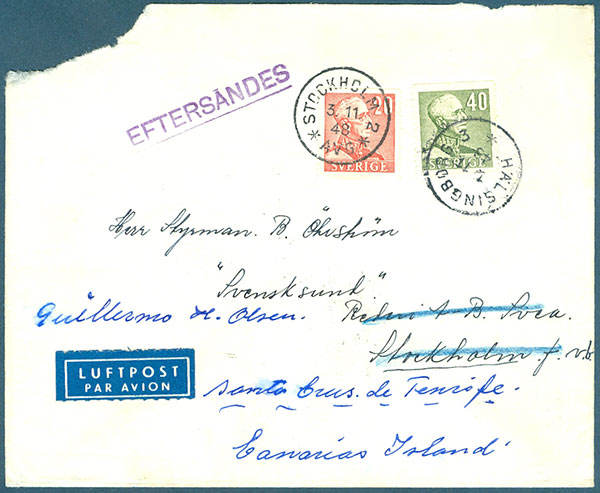 EFTERSÄNDES
STOCKHOLM 2
3. 11.
48
AVG
20
SVERIGE
40
SVERIGE
HÄLSINGBORG
Herr Styrman. B. Öhrström
"Svensksund."
Guillermo H. Olsen. Rederi A-B. Svea.
Stockholm f. v. b.
LUFTPOST
PAR AVION
Santa Crus. de Tenrife.
Canarias Island